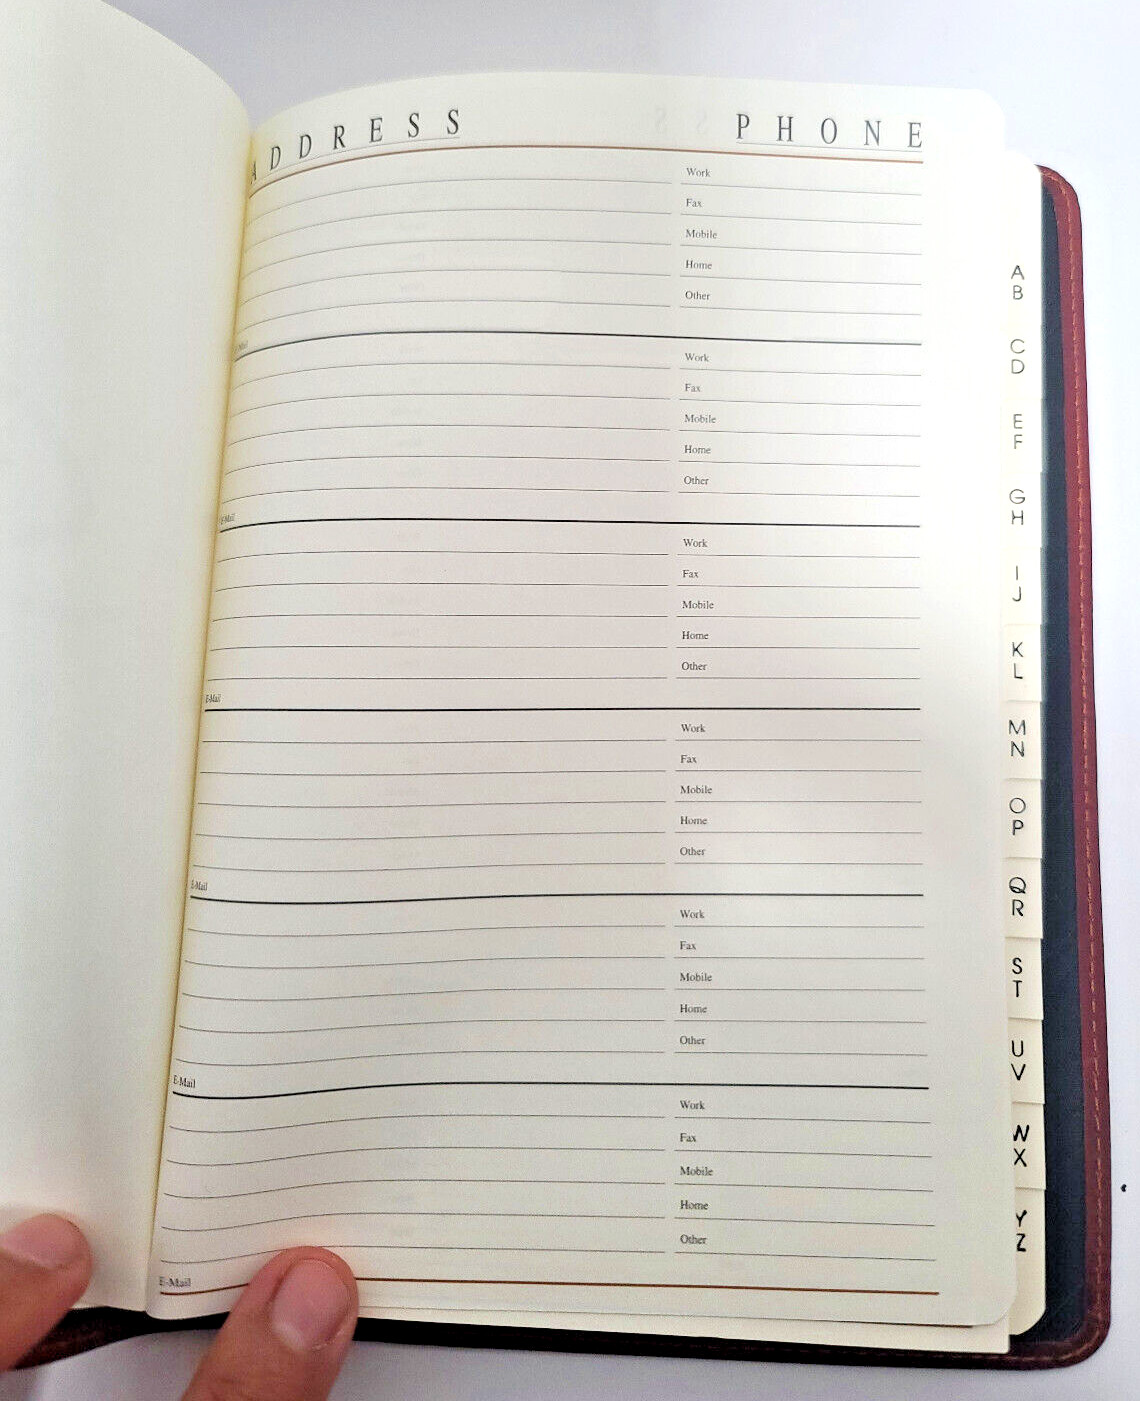 ADDRESS PHONE
Work
Fax
Mobile
Home
Other
E-Mail
Work
Fax
Mobile
Home
Other
E-Mail
Work
Fax
Mobile
Home
Other
E-Mail
Work
Fax
Mobile
Home
Other
E-Mail
Work
Fax
Mobile
Home
Other
E-Mail
Work
Fax
Mobile
Home
Other
E-Mail
A
B
C
D
E
F
G
H
I
J
K
L
M
N
O
P
Q
R
S
T
U
V
W
X
Y
Z